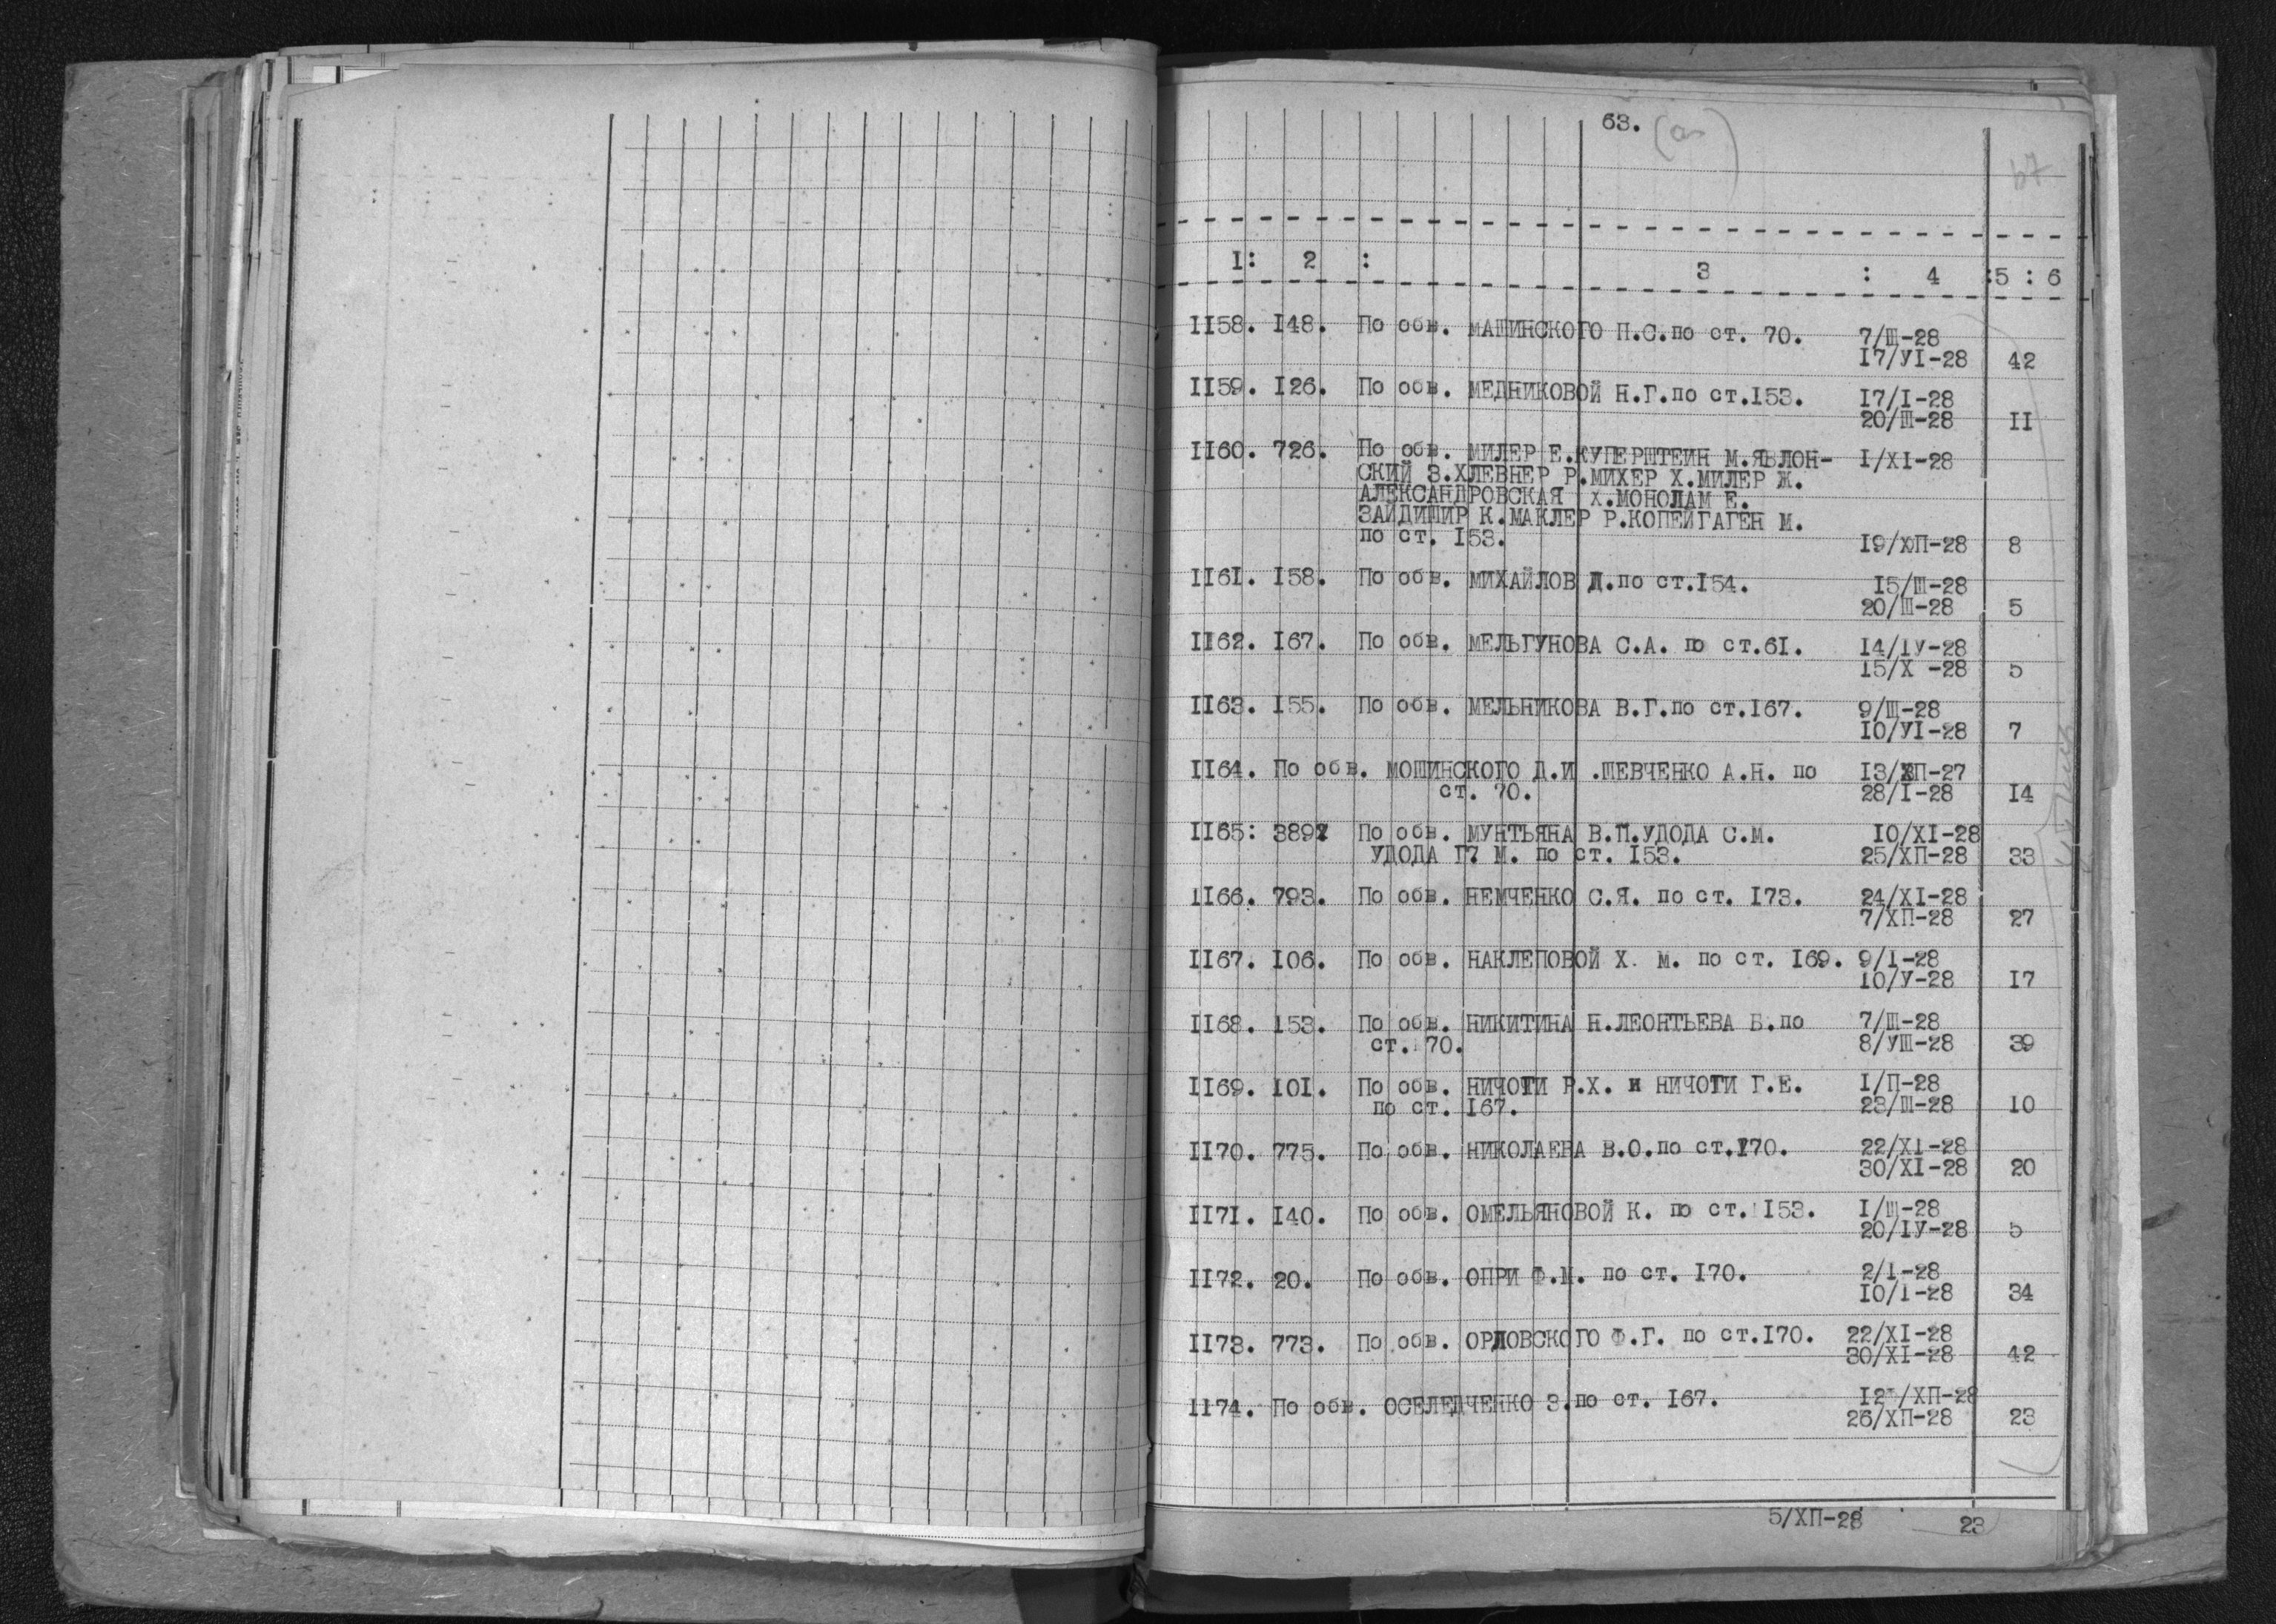 63.
67
1: 2 : 3 : 4 :5 : 6
II58. I48. По обв. МАШИНСКОГО П.С.по ст. 70. 7/Ш-28
I7/УI-28 42
II59. I26. По обв. МЕДНИКОВОЙ Н.Г.по ст.I53. I7/I-28
20/Ш-28 II
II60. 726. По обв. МИЛЕР Е.КУПЕРШТЕИН М.ЯБЛОН- I/XI-28
СКИЙ З.ХЛЕВНЕР Р.МИХЕР Х.МИЛЕР Ж.
АЛЕКСАНДРОВСКАЯ Х.МОНОЛАМ Е.
ЗАЙДИШИР К.МАКЛЕР Р.КОПЕЙГАГЕН М.
по ст. I53. I9/ХП-28 8
II61. I58. По обв. МИХАЙЛОВ Д.по ст.I54. I5/Ш-28
20/Ш-28 5
II62. I67. По обв. МЕЛЬГУНОВА С.А. по ст.6I. I4/IУ-28
I5/Х -28 5
II63. I55. По обв. МЕЛЬНИКОВА В.Г.по ст.I67. 9/Ш-28
I0/УI-28 7
II64. По обв. МОШИНСКОГО Д.И .ШЕВЧЕНКО А.Н. по I3/ХП-27
ст. 70. 28/I-28 I4
II65: 389 По обв. МУНТЬЯНА В.П.УДОДА С.М. I0/XI-28
УДОДА Г7 М. по ст. I53. 25/ХП-28 33
II66. 793. По обв. НЕМЧЕНКО С.Я. по ст. I73. 24/XI-28
7/ХП-28 27
II67. I06. По обв. НАКЛЕПОВОЙ Х. М. по ст. I69. 9/I-28
I0/У-28 I7
II68. I53. По обв. НИКИТИНА Н.ЛЕОНТЬЕВА В.по 7/Ш-28
ст. 70. 8/УШ-28 39
II69. I0I. По обв. НИЧОТИ Р.Х. и НИЧОТИ Г.Е. I/П-28
по ст. I67. 23/Ш-28 I0
II70. 775. По обв. НИКОЛАЕВА В.О.по ст.I70. 22/XI-28
30/XI-28 20
II7I. I40. По обв. ОМЕЛЬЯНОВОЙ К. по ст. I53. I/Ш-28
20/IУ-28 5
II72. 20. По обв. ОПРИ Ф.М. по ст. I70. 2/I-28
I0/I-28 34
II73. 773. По обв. ОРЛОВСКОГО Ф.Г. по ст.I70. 22/XI-28
30/XI-28 42
II74. По обв. ОСЕЛЕДЧЕНКО З.по ст. I67. I2 /ХП-28
26/ХП-28 23
5/ХП-28 23